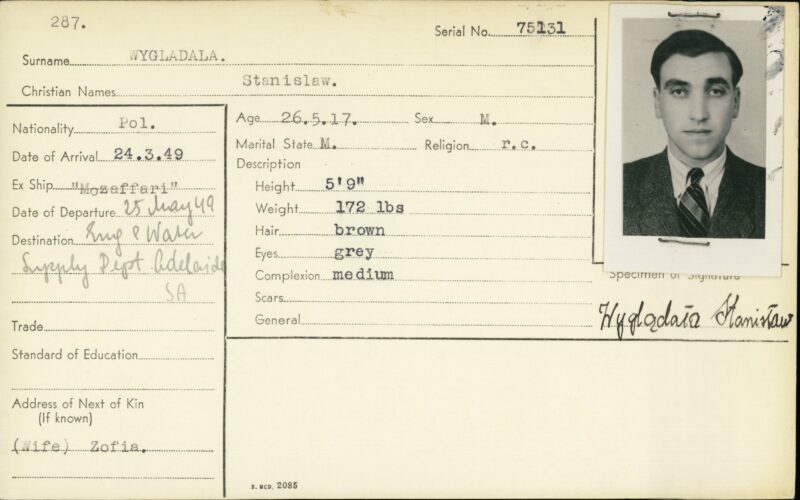 287.
Serial No. 75131
Surname WYGLADALA.
Christian Names Stanislaw.
Nationality Pol.
Date of Arrival 24.3.49
Ex Ship "Mozaffari"
Date of Departure 25 May 49
Destination Eng & Water
Supply Dept Adelaide
SA
Trade
Standard of Education
Address of Next of Kin
(If known)
(Wife) Zofia.
Age 26.5.17. Sex M.
Marital State M. Religion r.c.
Description
Height 5'9"
Weight 172 lbs
Hair brown
Eyes grey
Complexion medium
Scars
General
Specimen of Signature
Wyglądała Stanisław
S. MCD. 2085